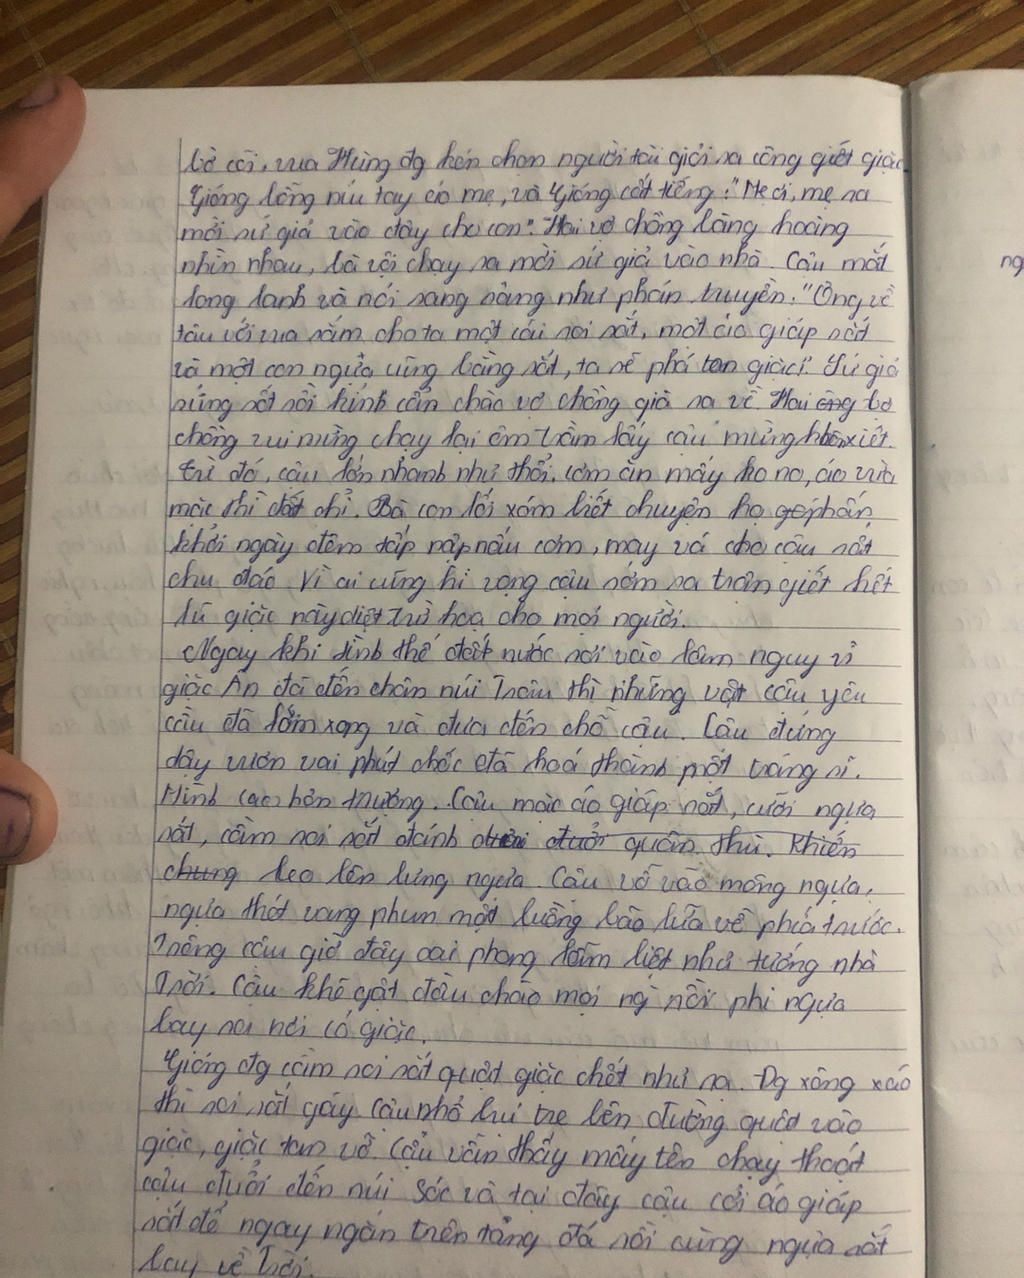 bờ cõi, vua Hùng đg kén chọn người tài giỏi ra công giết giặc.
Gióng bỗng níu tay áo mẹ, và Gióng cất tiếng: "Mẹ ơi, mẹ ra
mời sứ giả vào đây cho con". Hai vợ chồng bàng hoàng
nhìn nhau, bà vội chạy ra mời sứ giả vào nhà. Cậu mắt
long lanh và nói sang sảng như phán truyền: "Ông về
tâu với vua sắm cho ta một cái roi sắt, một áo giáp sắt
và một con ngựa cũng bằng sắt, ta sẽ phá tan giặc!". Sứ giả
sửng sốt rồi kính cẩn chào vợ chồng già ra về. Hai ông bợ
chồng vui mừng chạy lại ôm trầm lấy cậu mừng khôn xiết.
Từ đó, cậu lớn nhanh như thổi. cơm ăn mấy ko no, áo vừa
mặc thì đứt chỉ. Bà con lối xóm biết chuyện họ phấn
khởi ngày đêm tấp nập nấu cơm, may vá cho cậu rất
chu đáo vì ai cũng hi vọng cậu sớm ra trận giết hết
lũ giặc này diệt trừ hoạ cho mọi người.
Ngay khi tình thế đất nước rơi vào lâm nguy vì
giặc Ân đã đến chân núi Trâu thì những vật cậu yêu
cầu đã làm xong và đưa đến chỗ cậu. Cậu đứng
dậy vươn vai phút chốc đã hoá thành một tráng sĩ.
Mình cao hơn trượng. Cậu mặc áo giáp sắt, cưỡi ngựa
sắt, cầm roi sắt đánh đuổi quân thù. Khiến
chung leo lên lưng ngựa. Cậu vỗ vào mông ngựa,
ngựa thét vang phun một luồng bão lửa về phía trước.
Trông cậu giờ đây oai phong lẫm liệt như tướng nhà
Trời. Cậu khẽ gật đầu chào mọi ng` rồi phi ngựa
bay ra nơi có giặc.
Gióng đg cầm roi sắt quật giặc chết như rạ. Đg xông xáo
thì roi sắt gãy. Cậu nhổ bụi tre bên đường quật vào
giặc, giặc tan vỡ. Cậu vẫn thấy mấy tên chạy thoát
cậu đuổi đến núi Sóc và tại đây cậu cởi áo giáp
sắt để ngay ngắn trên tảng đá rồi cùng ngựa sắt
bay về trời.
ng